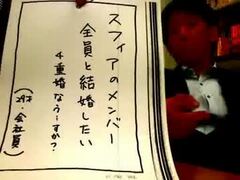 スフィアのメンバー
全員と結婚したい
4重婚なう…すか?
会社員)